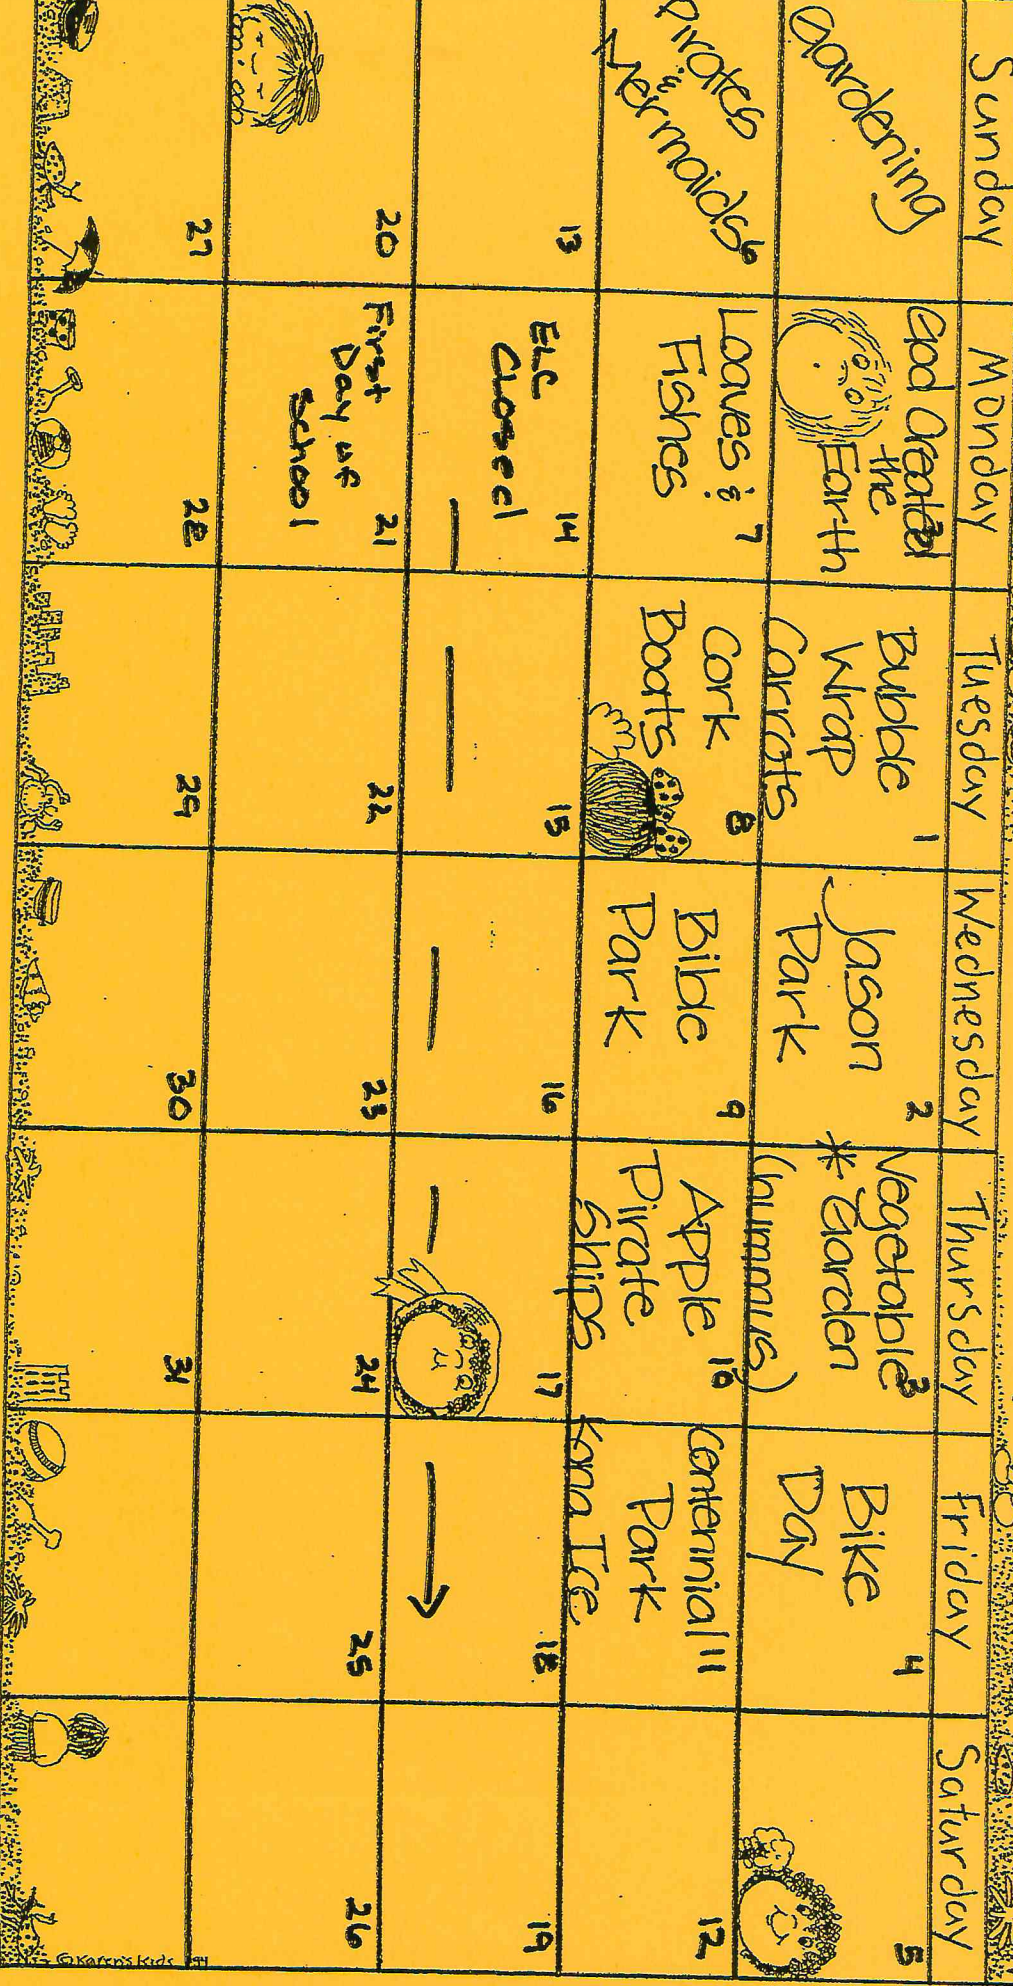 Sunday
Monday
Tuesday
Wednesday
Thursday
Friday
Saturday
Gardening
God Created
the
Earth
Bubble
Wrap
Carrots
1
Jason
Park
2
Vegetable
* Garden
(hummus)
3
Bike
Day
4
5
Pirates
&
Mermaids
6
Loaves &
Fishes
7
Cork
Boats
8
Bible
Park
9
Apple
Pirate
Ships
10
Centennial
Park
Kona Ice
11
12
13
ELC
Closed
14
15
16
17
18
19
20
First
Day of
School
21
22
23
24
25
26
27
28
29
30
31
© Karen's Kids '94